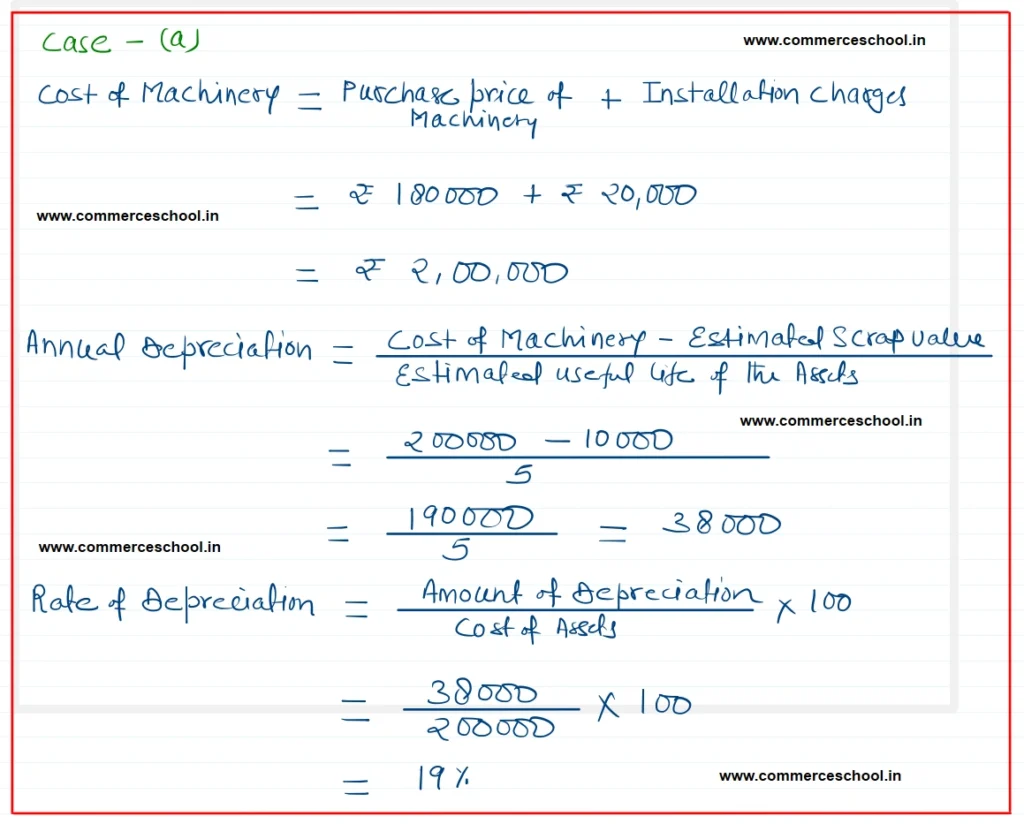 Case - (a)
www.commerceschool.in
Cost of Machinery = Purchase price of Machinery + Installation Charges
= ₹ 180000 + ₹ 20,000
www.commerceschool.in
= ₹ 2,00,000
Annual Depreciation = Cost of Machinery - Estimated Scrap value
Estimated useful life of the Assets
www.commerceschool.in
= 200000 - 10000
5
= 190000 = 38000
5
www.commerceschool.in
Rate of Depreciation = Amount of Depreciation × 100
Cost of Assets
= 38000 × 100
200000
= 19%
www.commerceschool.in